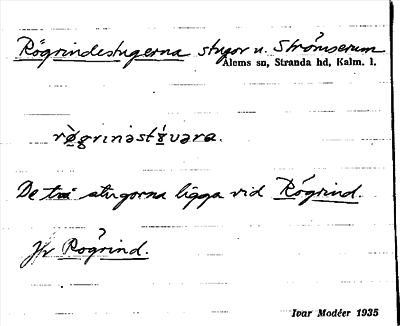 Rögrindestugerna stugor u. Strömserum
Ålems sn, Stranda hd, Kalm. l.
De två stugorna ligga vid Rögrind.
Jfr Rögrind.
Ivar Modéer 1935